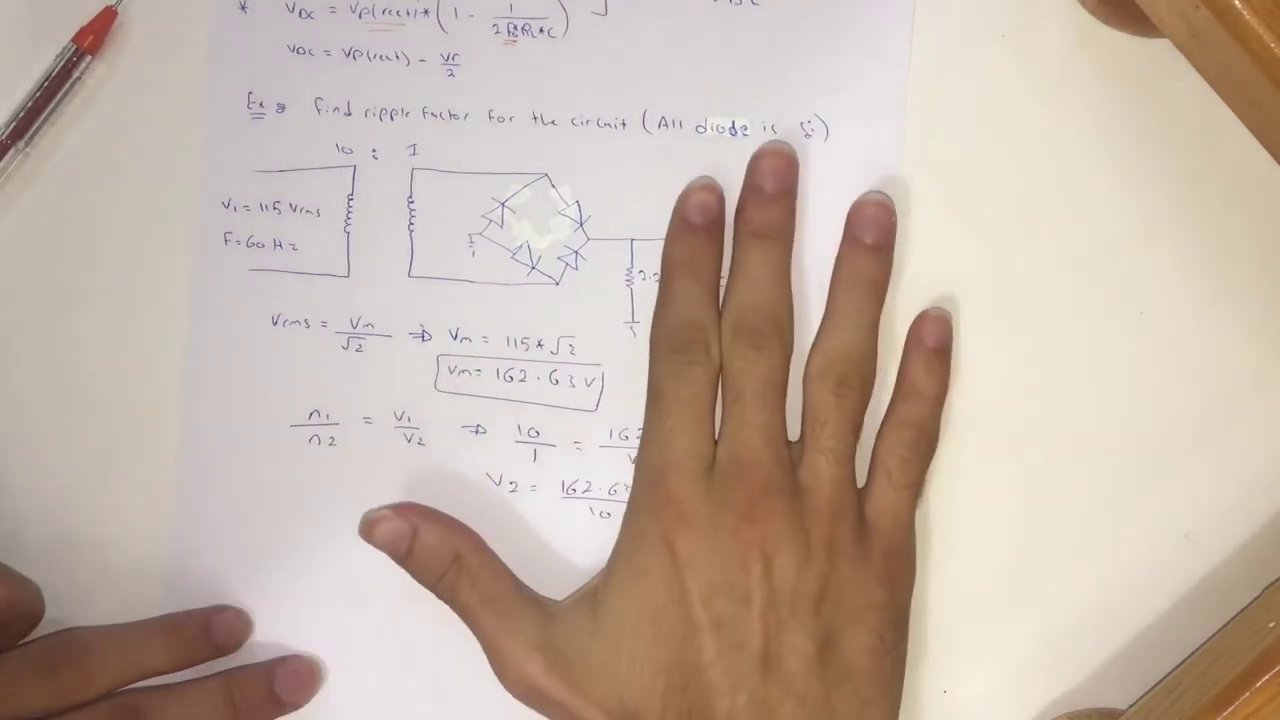 * VDC = Vp(rect)*(1 - 1 / 2 R*RL*C)
VDC = Vp(rect) - Vr/2
Ex: find ripple factor for the circuit (All diode is Si)
10 : 1
V1 = 115 Vrms
F = 60 Hz
2.2
Vrms = Vm/√2 ⇒ Vm = 115*√2
Vm = 162.63 V
n1/n2 = V1/V2 ⇒ 10/1 = 162
V2 = 162.6 / 10